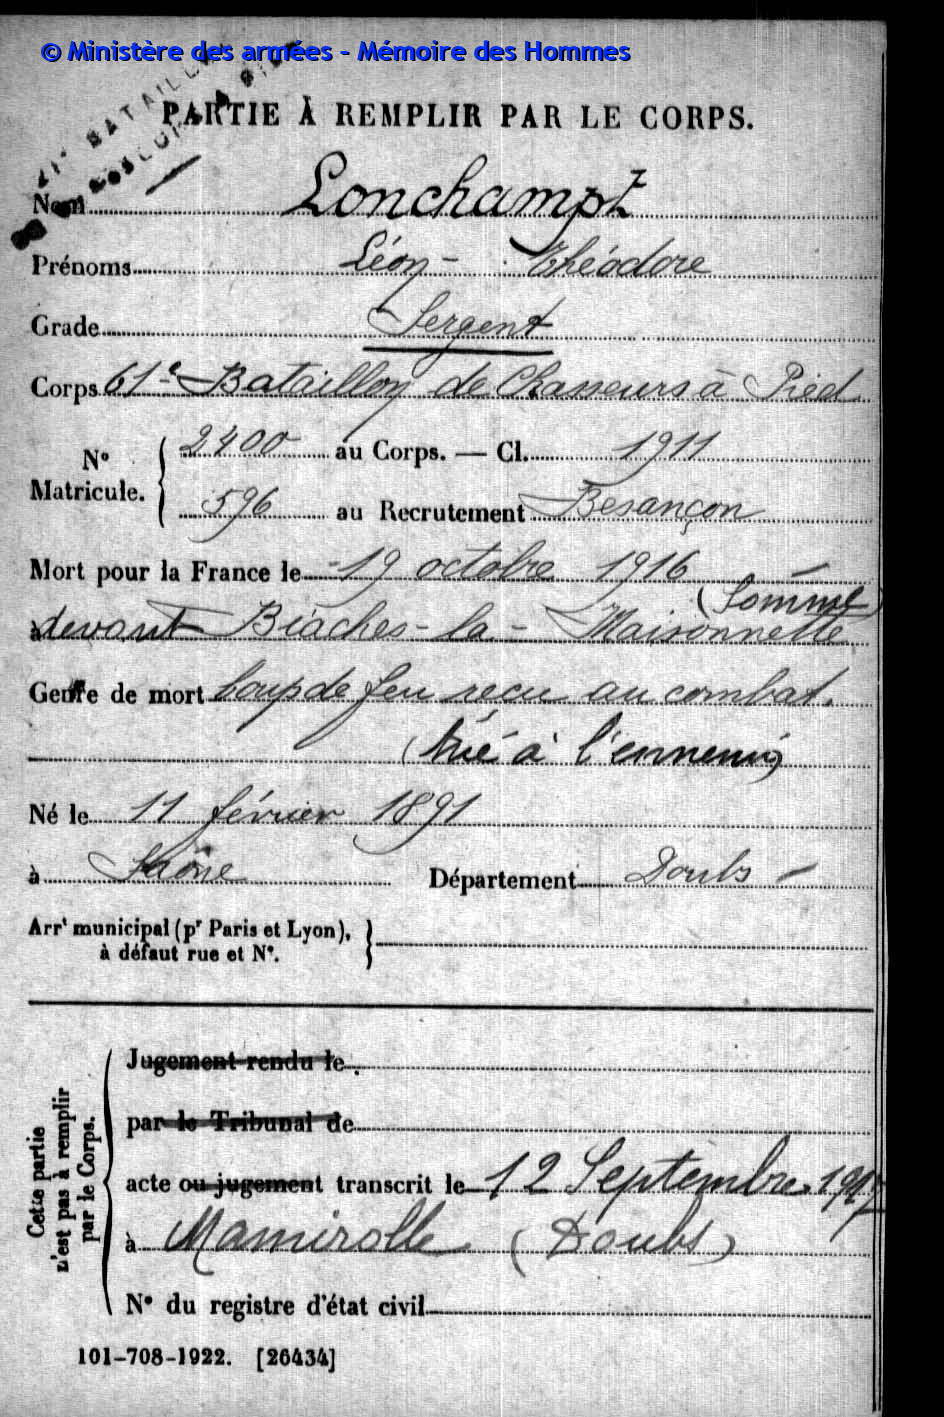 © Ministère des armées - Mémoire des Hommes
PARTIE À REMPLIR PAR LE CORPS.
Nom Lonchampt
Prénoms Léon - Théodore
Grade Sergent
Corps 61e Bataillon de Chasseurs à Pied
N° Matricule. { 2400 au Corps. — Cl. 1911
596 au Recrutement Besançon
Mort pour la France le 19 octobre 1916
(Somme)
devant Biaches - la - Maisonnette
Genre de mort Coup de feu reçu au combat.
(tué à l'ennemi)
Né le 11 février 1891
à Saône Département Doubs
Arrt municipal (pr Paris et Lyon),
à défaut rue et N°.
Cette partie n'est pas à remplir par le Corps.
Jugement rendu le
par le Tribunal de
acte ou jugement transcrit le 12 Septembre 1917
à Mamirolle (Doubs)
N° du registre d'état civil
101-708-1922. [26434]